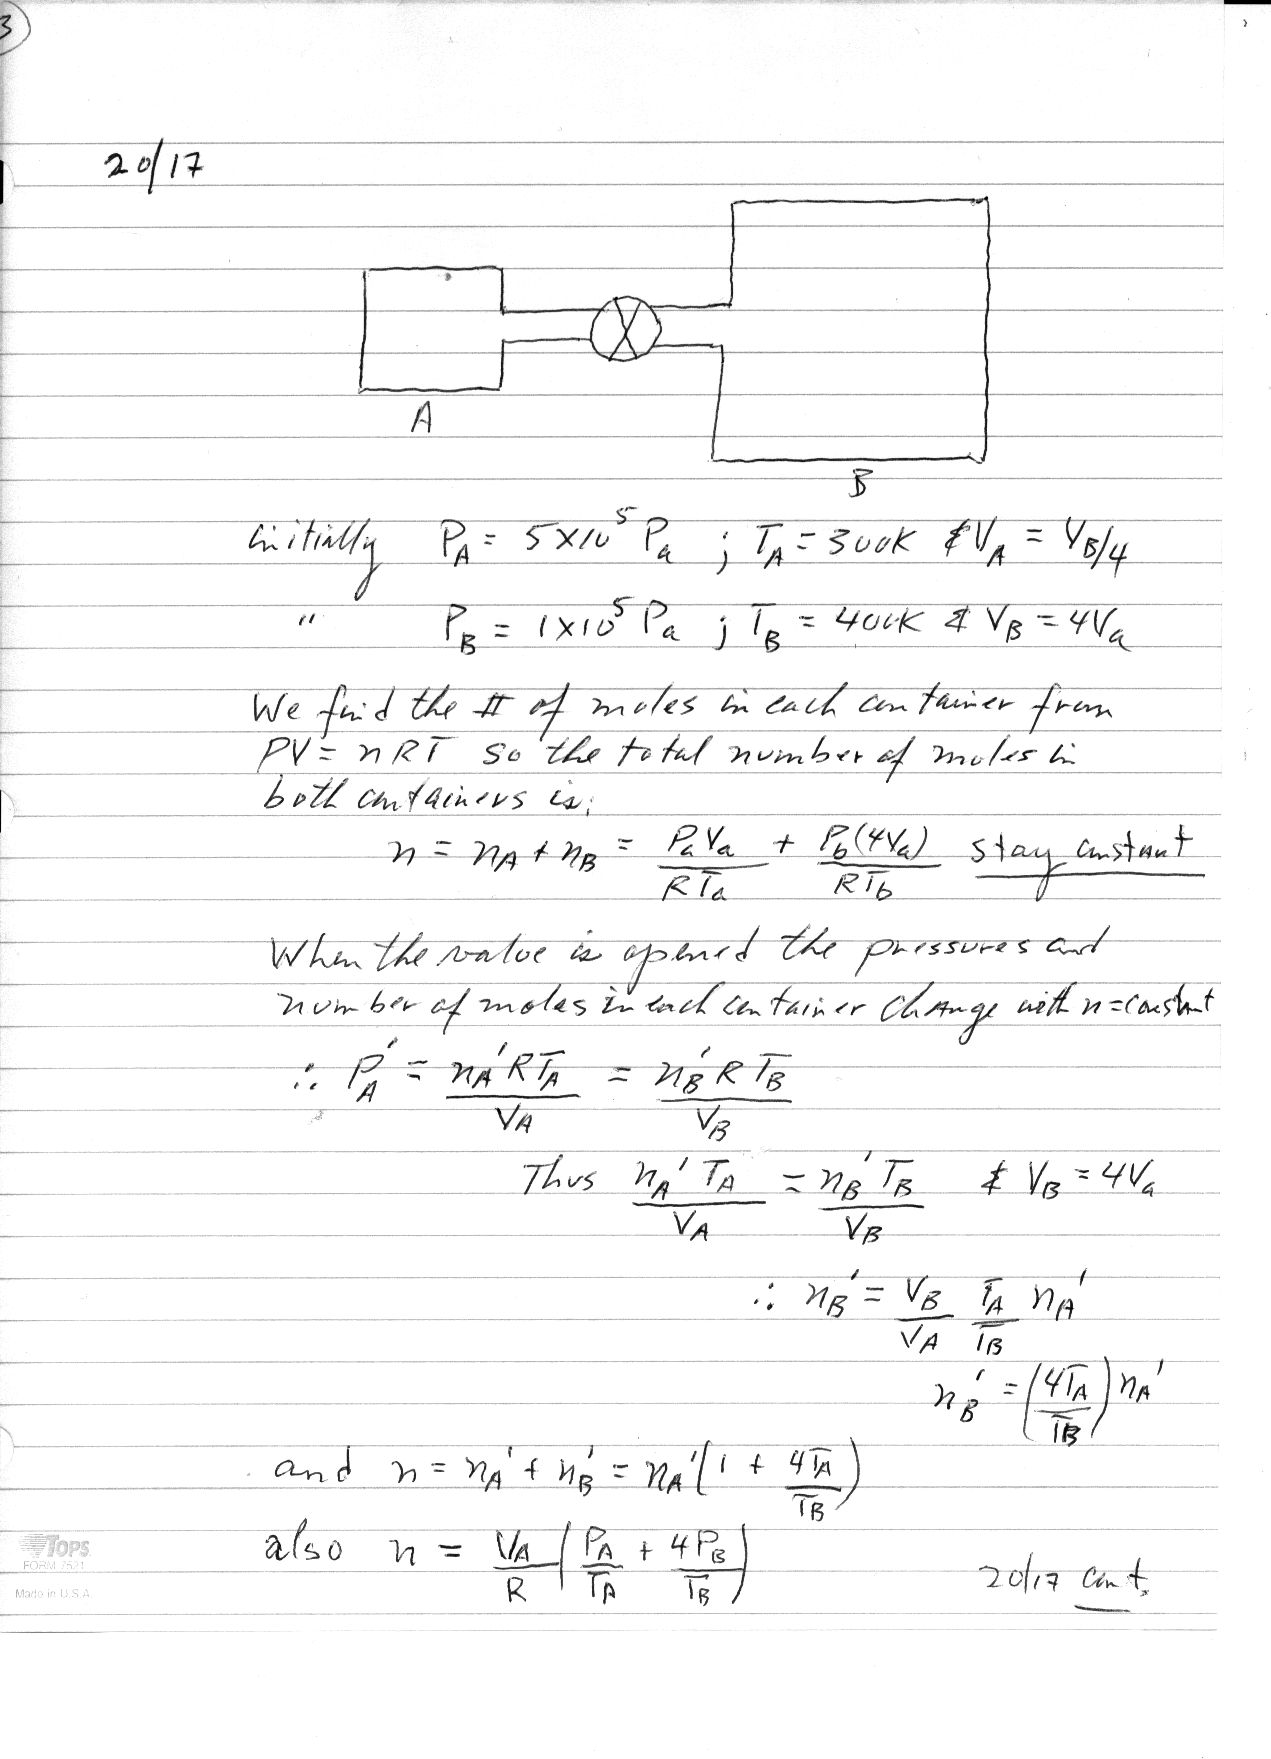 3
20/17
A
B
initially P_A = 5×10^5 Pa ; T_A = 300K & V_A = V_B/4
" P_B = 1×10^5 Pa ; T_B = 400K & V_B = 4V_a
We find the # of moles in each container from
PV = nRT so the total number of moles in
both containers is;
n = n_A + n_B = P_a V_a / R T_a + P_b (4V_a) / R T_b stay constant
When the valve is opened the pressures and
number of moles in each container change with n = constant
∴ P_A' = n_A' R T_A / V_A = n_B' R T_B / V_B
Thus n_A' T_A / V_A = n_B' T_B / V_B & V_B = 4V_a
∴ n_B' = V_B / V_A T_A / T_B n_A'
n_B' = (4T_A / T_B) n_A'
and n = n_A' + n_B' = n_A' (1 + 4T_A / T_B)
also n = V_A / R (P_A / T_A + 4P_B / T_B)
20/17 cont.
TOPS
FORM 7521
Made in U.S.A.